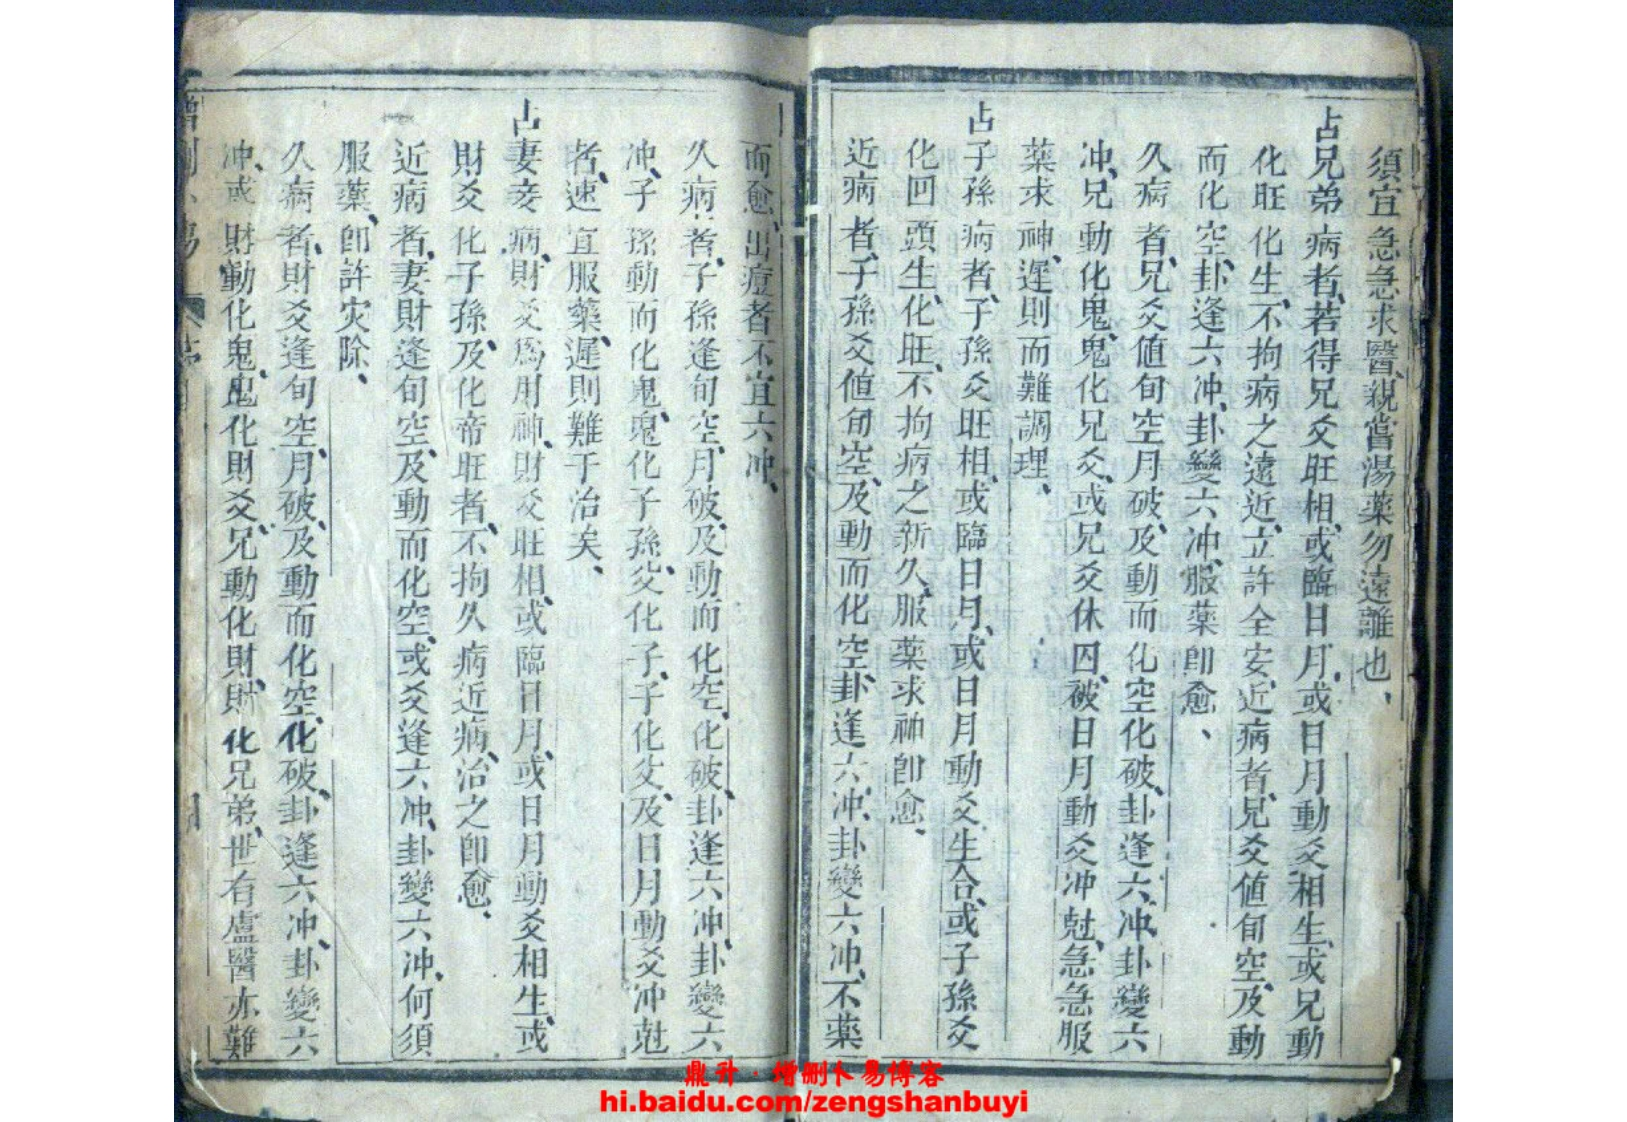 須宜急急求醫、親嘗湯藥、勿遠離也、
占兄弟病者、若得兄爻旺相、或臨日月、或日月動爻相生、或兄動
化旺化生、不拘病之遠近、立許全安、近病者、兄爻値旬空、及動
而化空、卦逢六冲、卦變六冲、服藥卽愈、
久病者、兄爻値旬空月破、及動而化空化破、卦逢六冲、卦變六
冲、兄動化鬼、鬼化兄爻、或兄爻休囚、被日月動爻冲尅、急急服
藥求神、遲則而難調理、
占子孫病者、子孫爻旺相、或臨日月、或日月動爻生合、或子孫爻
化回頭生、化旺、不拘病之新久、服藥求神卽愈、
近病者、子孫爻値旬空、及動而化空、卦逢六冲、卦變六冲、不藥
而愈、出痘者不宜六冲、
久病者、子孫逢旬空、月破、及動而化空、化破、卦逢六冲、卦變六
冲、子孫動而化鬼、鬼化子孫、父化子、子化父、及日月動爻冲尅
者、速宜服藥、遲則難于治矣、
占妻妾病、財爻爲用神、財爻旺相、或臨日月、或日月動爻相生、或
財爻化子孫、及化帝旺者、不拘久病近病、治之卽愈、
近病者、妻財逢旬空、及動而化空、或爻逢六冲、卦變六冲、何須
服藥、卽許灾除、
久病者、財爻逢旬空、月破、及動而化空、化破、卦逢六冲、卦變六
冲、或財動化鬼、鬼化財爻、兄動化財、財化兄弟、世有盧醫亦難
增刪卜易
鼎升·增刪卜易博客
hi.baidu.com/zengshanbuyi